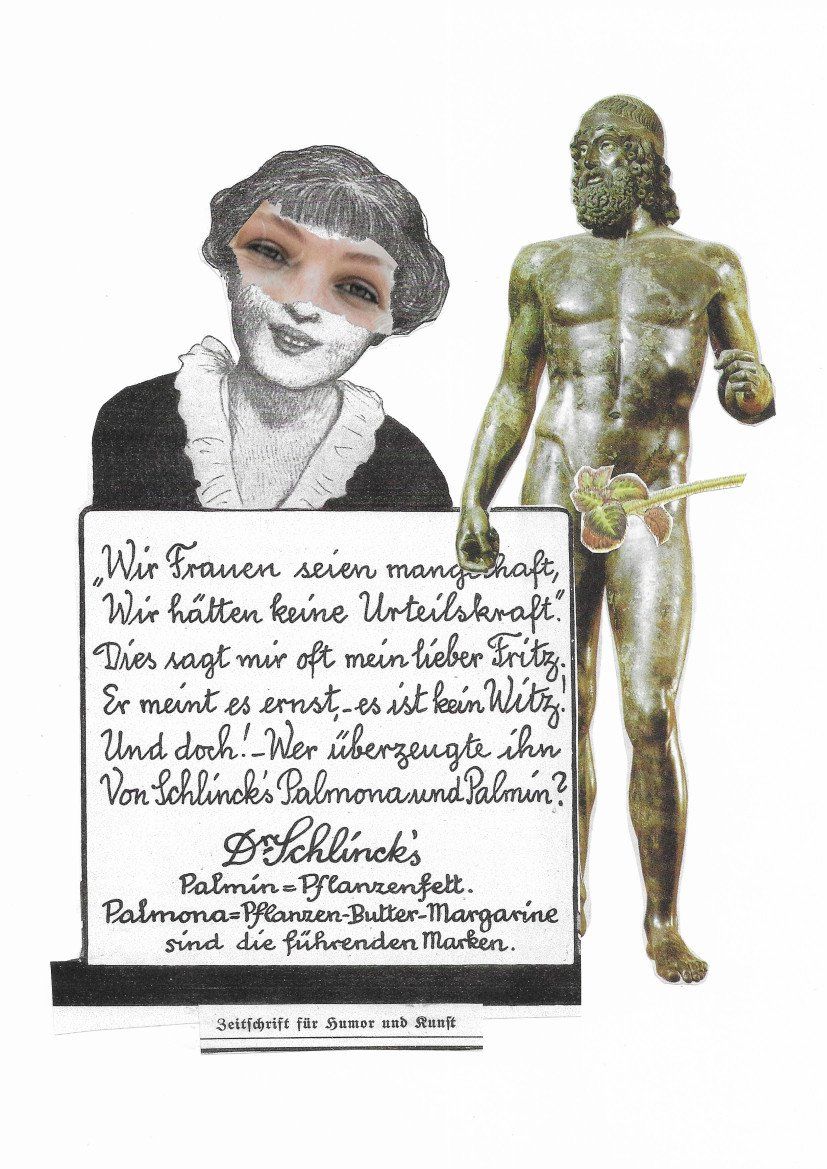 „Wir Frauen seien mang haft,
Wir hätten keine Urteilskraft“.
Dies sagt mir oft mein lieber Fritz.
Er meint es ernst,-es ist kein Witz!
Und doch!-Wer überzeugte ihn
Von Schlinck's Palmona und Palmin?
Dr. Schlinck's
Palmin=Pflanzenfett.
Palmona=Pflanzen-Butter-Margarine
sind die führenden Marken.
Zeitschrift für Humor und Kunst